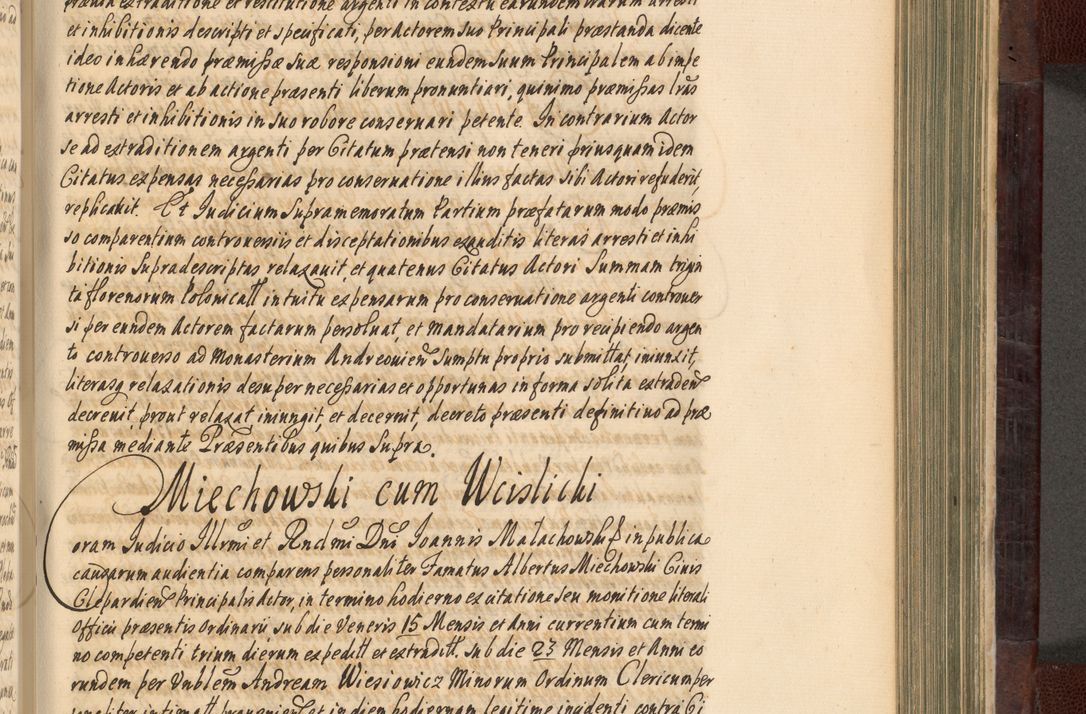 et inhibitionis descripti et specificati, per Actorem suo Principali præstanda dicente
ideo inhærendo præmissæ suæ responsioni eundem suum Principalem ab impe
titione Actoris et ab actione præsenti liberum pronuntiari, quinimo præmissas lras
arresti et inhibitionis in suo robore conseruari petente. In contrarium Actor
se ad extraditionem argenti per Citatum prætensi non teneri priusquam idem
Citatus expensas necessarias pro conseruatione illius factas sibi Actori refuderit,
replicauit. Et Iudicium supramemoratum Partium præfatarum modo præmis
so comparentium controuersiis et disceptationibus exauditis literas arresti et inhi
bitionis supradescriptas relaxauit, et quatenus Citatus Actori Summam trigin
ta florenorum Polonicall intuitu expensarum pro conseruatione argenti controuer
si per eundem Actorem factarum persoluat, et Mandatarium pro recipiendo argen
to controuerso ad Monasterium Andreouien sumptu propris submittat, iniunxit,
literasq relaxationis desuper necessarias et opportunas in forma solita extraden
decreuit, prout relaxat, iniungit, et decernit, decreto præsenti definitiuo ad præ
missa mediante Præsentibus quibus supra.
Miechowski cum Wcislicki
Coram Iudicio Illrmi et Rndmi Dni Ioannis Małachowski in publica
causarum audientia comparens personaliter Famatus Albertus Miechowski Ciuis
Clepardien Principalis Actor, in termino hodierno ex citatione seu monitione literali
Officii præsentis Ordinarii sub die Veneris 15 Mensis et Anni currentium cum termi
no competenti trium dierum expeditt et extraditt. sub die 23 Mensis et Anni eo
rundem per Vnblem Andream Wiesiowicz Minorum Ordinum Clericum per
sonaliter intimatt prouenien et in diem hodiernam legitime incidenti contra Ci